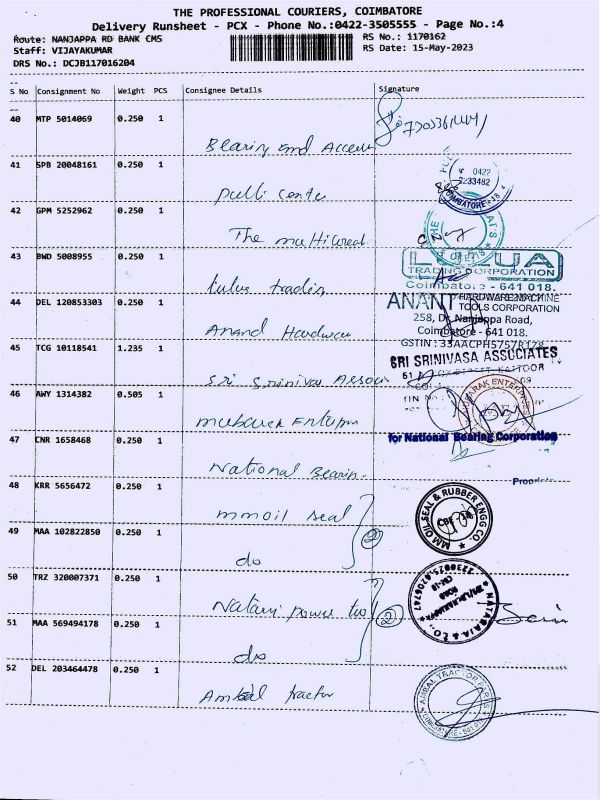 THE PROFESSIONAL COURIERS, COIMBATORE
Delivery Runsheet - PCX - Phone No.:0422-3505555 - Page No.:4
Route: NANJAPPA RD BANK CMS RS No.: 1170162
Staff: VIJAYAKUMAR RS Date: 15-May-2023
DRS No.: DCJB117016204
S No Consignment No Weight PCS Consignee Details Signature
40 MTP 5014069 0.250 1
Bearing and Access
41 SPB 20048161 0.250 1
0422
2233482
COIMBATORE-18
Pulli Center
42 GPM 5252962 0.250 1
The multicreat
43 BWD 5008955 0.250 1
TRADING CORPORATION
Coimbatore - 641 018.
lulua trading
44 DEL 120853303 0.250 1
ANANT HARDWARE MACHINE
TOOLS CORPORATION
258, Dr. Nanjappa Road,
Coimbatore - 641 018.
Anand Hardware
GSTIN : 33AACPH5757R1Z8
45 TCG 10118541 1.235 1
SRI SRINIVASA ASSOCIATES
Sri Srinivas Associ
46 AWY 1314382 0.505 1
MUBARAK ENTERPRISES
mubarak Enterpri
47 CNR 1658468 0.250 1
for National Bearing Corporation
National Bearin
Propriet
48 KRR 5656472 0.250 1
mm oil seal
MM OIL SEAL & RUBBER ENGG CO.
CBE-18
2
49 MAA 102822850 0.250 1
do
50 TRZ 320007371 0.250 1
Natraj power tool
2
NATARAJA & CO.,
51 MAA 569494178 0.250 1
do
52 DEL 203464478 0.250 1
Ambal tractor
AMBAL TRACTOR PARTS